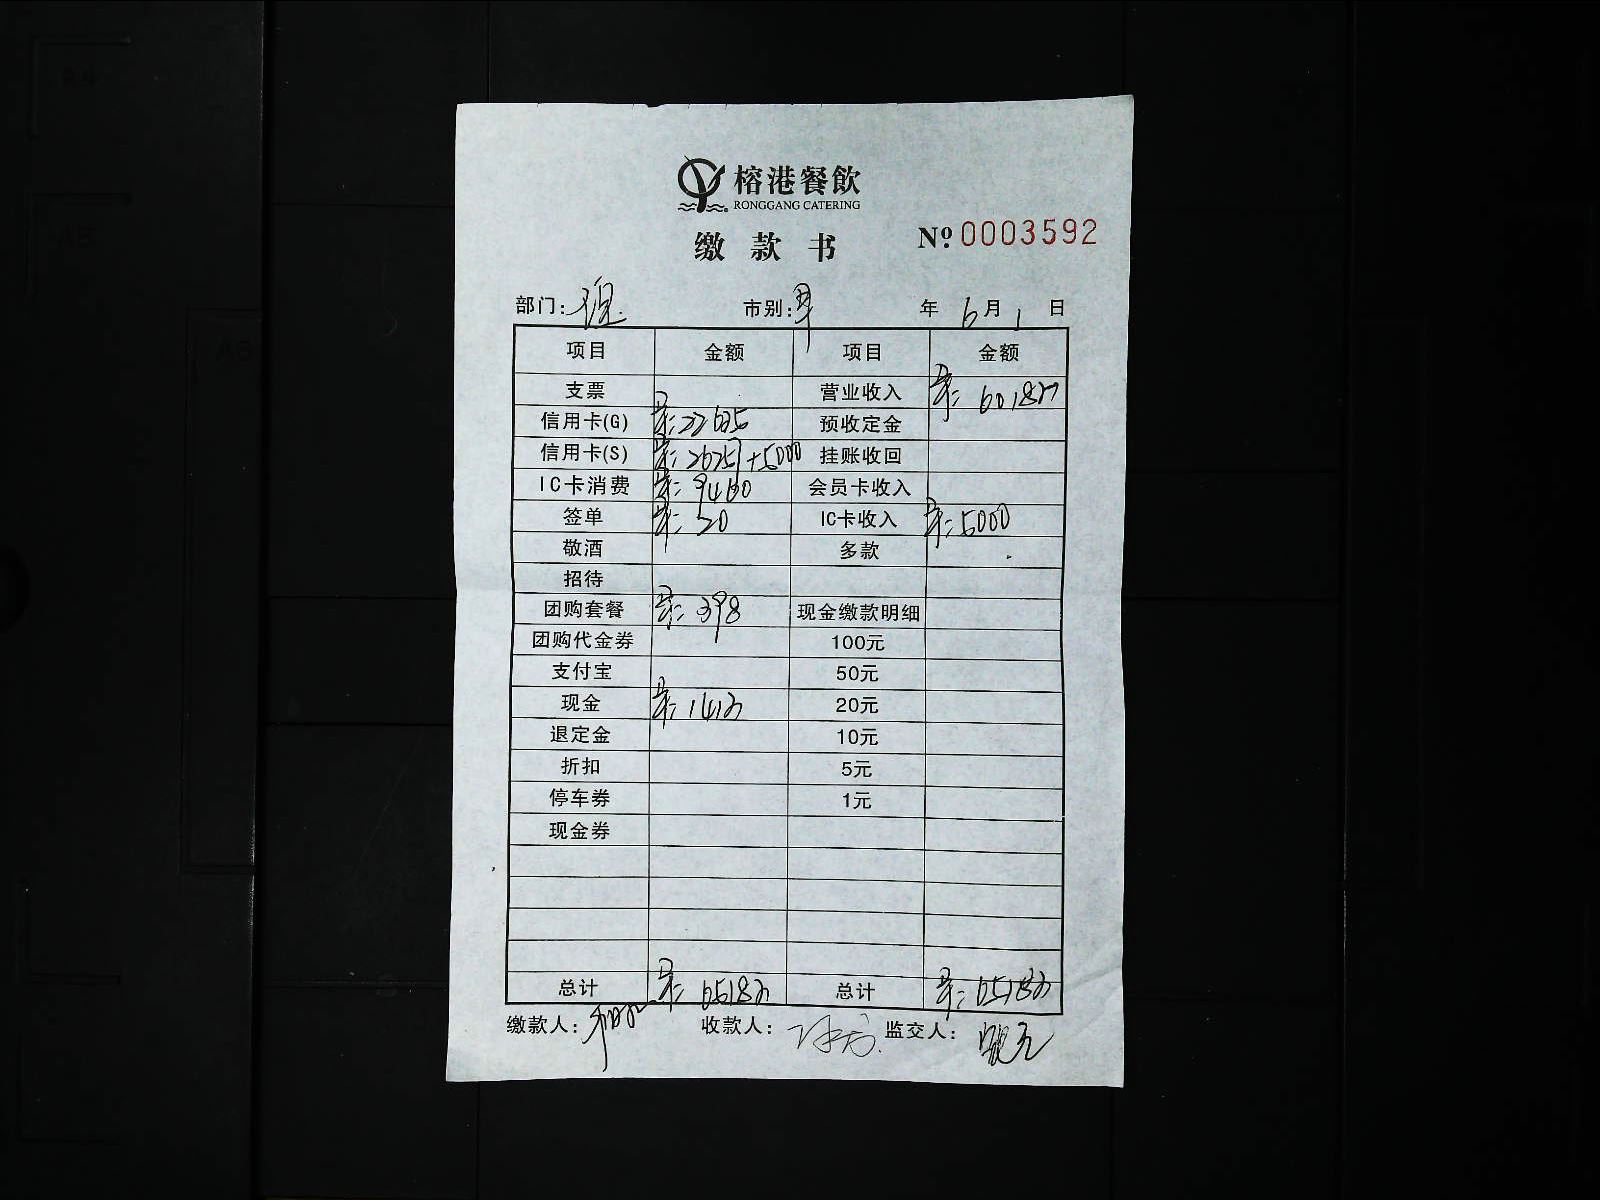 榕港餐飲
RONGGANG CATERING
缴款书
№ 0003592
部门: 市别:早 年 6月1日
项目 金额 项目 金额
支票 营业收入 早: 60182
信用卡(G) 早: 22625 预收定金
信用卡(S) 早: +5000 挂账收回
IC卡消费 早: 9460 会员卡收入
签单 早: 20 IC卡收入 早: 5000
敬酒 多款
招待
团购套餐 早: 398 现金缴款明细
团购代金券 100元
支付宝 50元
现金 早: 20元
退定金 10元
折扣 5元
停车券 1元
现金券
总计 早: 65182 总计 早: 65182
缴款人: 收款人: 监交人: